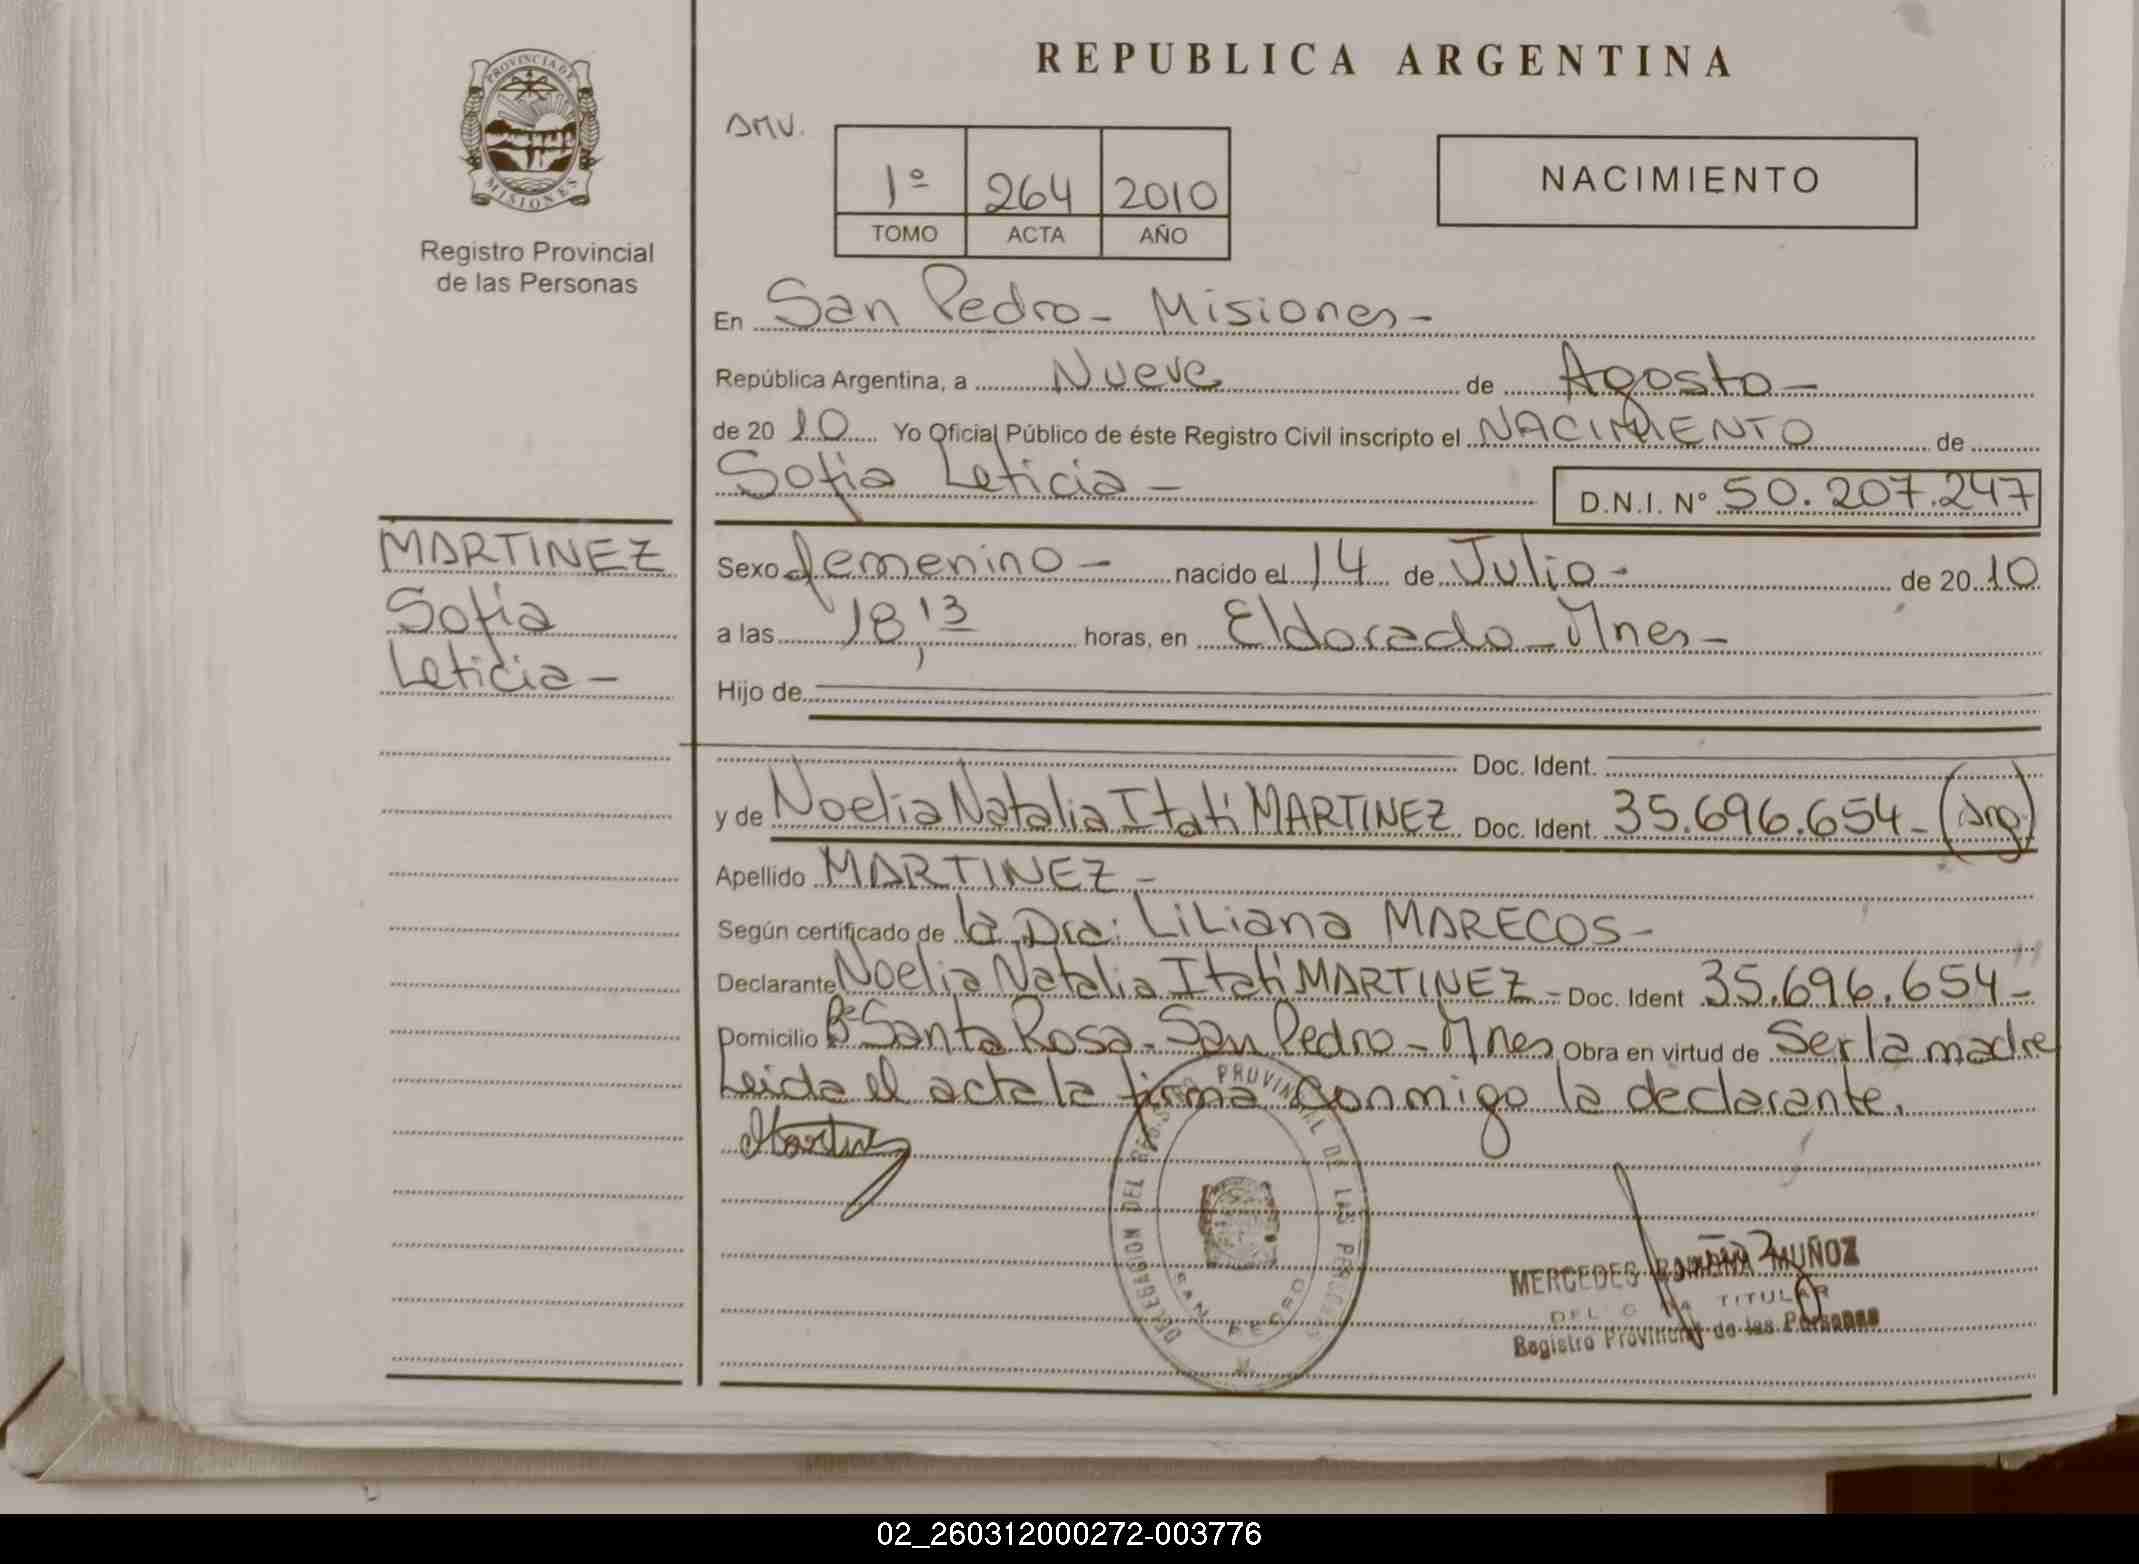 PROVINCIA DE
MISIONES
Registro Provincial
de las Personas
MARTINEZ
Sofia
Leticia -
REPUBLICA ARGENTINA
DMV.
1º 264 2010
TOMO ACTA AÑO
NACIMIENTO
En San Pedro - Misiones -
República Argentina, a Nueve de Agosto -
de 20 10 Yo Oficial Público de éste Registro Civil inscripto el NACIMIENTO de
Sofia Leticia - D.N.I. Nº 50.207.247
Sexo femenino - nacido el 14 de Julio - de 20 10
a las 18,13 horas, en Eldorado - Mnes -
Hijo de
Doc. Ident.
y de Noelia Natalia Itatí MARTINEZ Doc. Ident. 35.696.654 - (Arg)
Apellido MARTINEZ -
Según certificado de la Dra: Liliana MARECOS -
Declarante Noelia Natalia Itatí MARTINEZ - Doc. Ident 35.696.654 -
Domicilio Bº Santa Rosa - San Pedro - Mnes Obra en virtud de Ser la madre
Leida el acta la firma conmigo la declarante.
Martinez
DELEGACION DEL REGISTRO PROVINCIAL DE LAS PERSONAS
SAN PEDRO
MERCEDES RAMONA MUÑOZ
TITULAR
Registro Provincial de las Personas
02_260312000272-003776